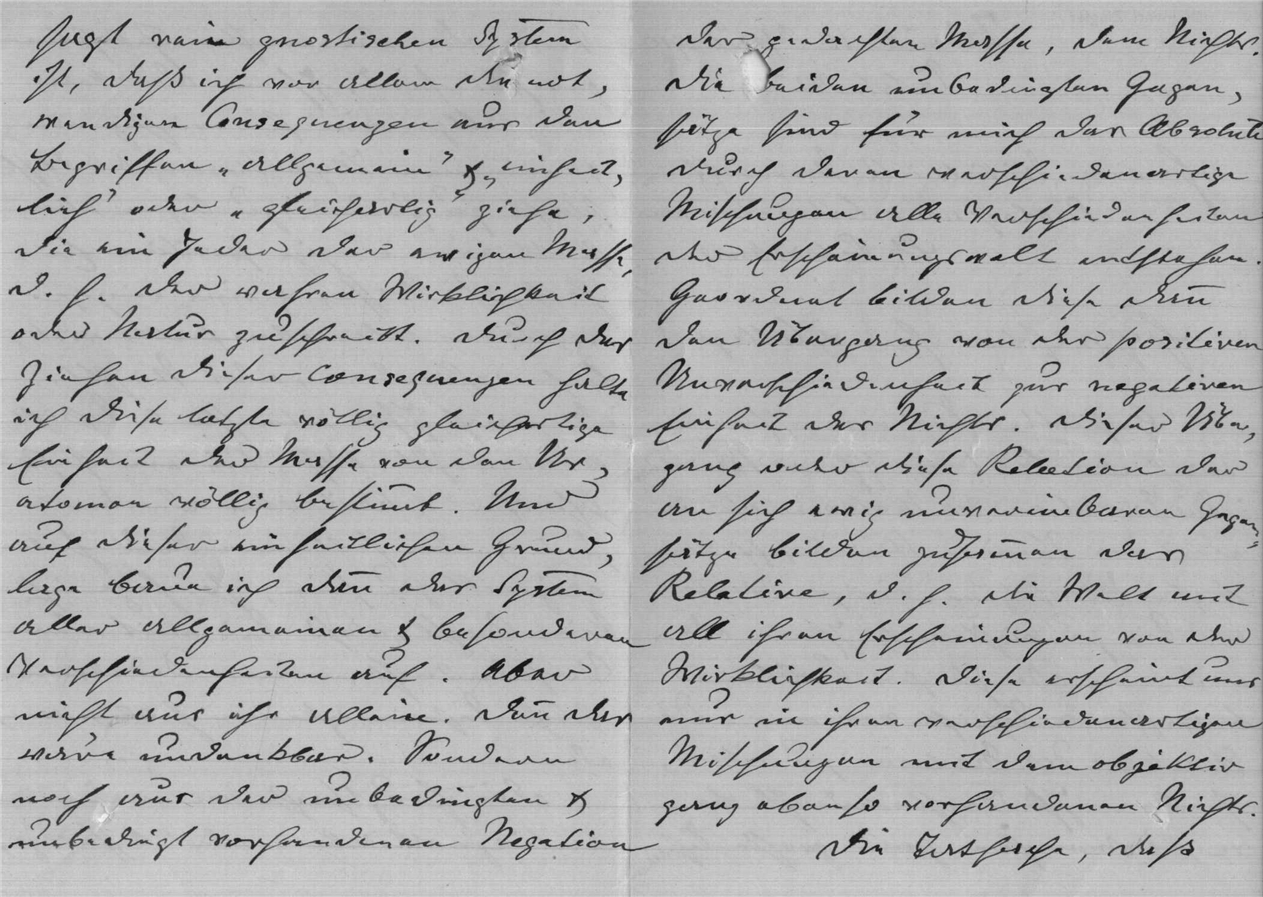 sagt rein gnostischen System
ist, daß ich vor allem die not-
wendigen Consequenzen aus den
Begriffen „allgemein" & „einheit-
lich" oder „gleichartig" ziehe,
die ein Jeder der ewigen Masse,
d. h. der wahren Wirklichkeit
oder Natur zuschreibt. Durch das
Ziehen dieser Consequenzen halte
ich diese letzte völlig gleichartige
Einheit der Masse von den Ur-
atomen völlig bestim̄t. Und
auf dieser einheitlichen Grund-
lage baue ich dan̄ das System
aller allgemeinen & besonderen
Verschiedenheiten auf. Aber
nicht aus ihr allein. Den̄ das
wäre undenkbar. Sondern
noch aus der unbedingten &
unbedingt vorhandenen Negation
der gedachten Masse, dem Nichts.
Die beiden unbedingten Gegen-
sätze sind für mich das Absolute
durch deren verschiedenartige
Mischungen alle Verschiedenheiten
der Erscheinungswelt entstehen.
Geordnet bilden diese dan̄
den Übergang von der positiven
Unverschiedenheit zur negativen
Einheit des Nichts. Dieser Über-
gang oder diese Relation der
an sich ewig unvereinbaren Gegen-
sätze bilden zusam̄en das
Relative, d. h. die Welt mit
all ihren Erscheinungen von der
Wirklichkeit. Diese erscheint uns
nur in ihren verschiedenartigen
Mischungen mit dem objektiv
ganz ebenso vorhandenen Nichts.
Die Thatsache, daß